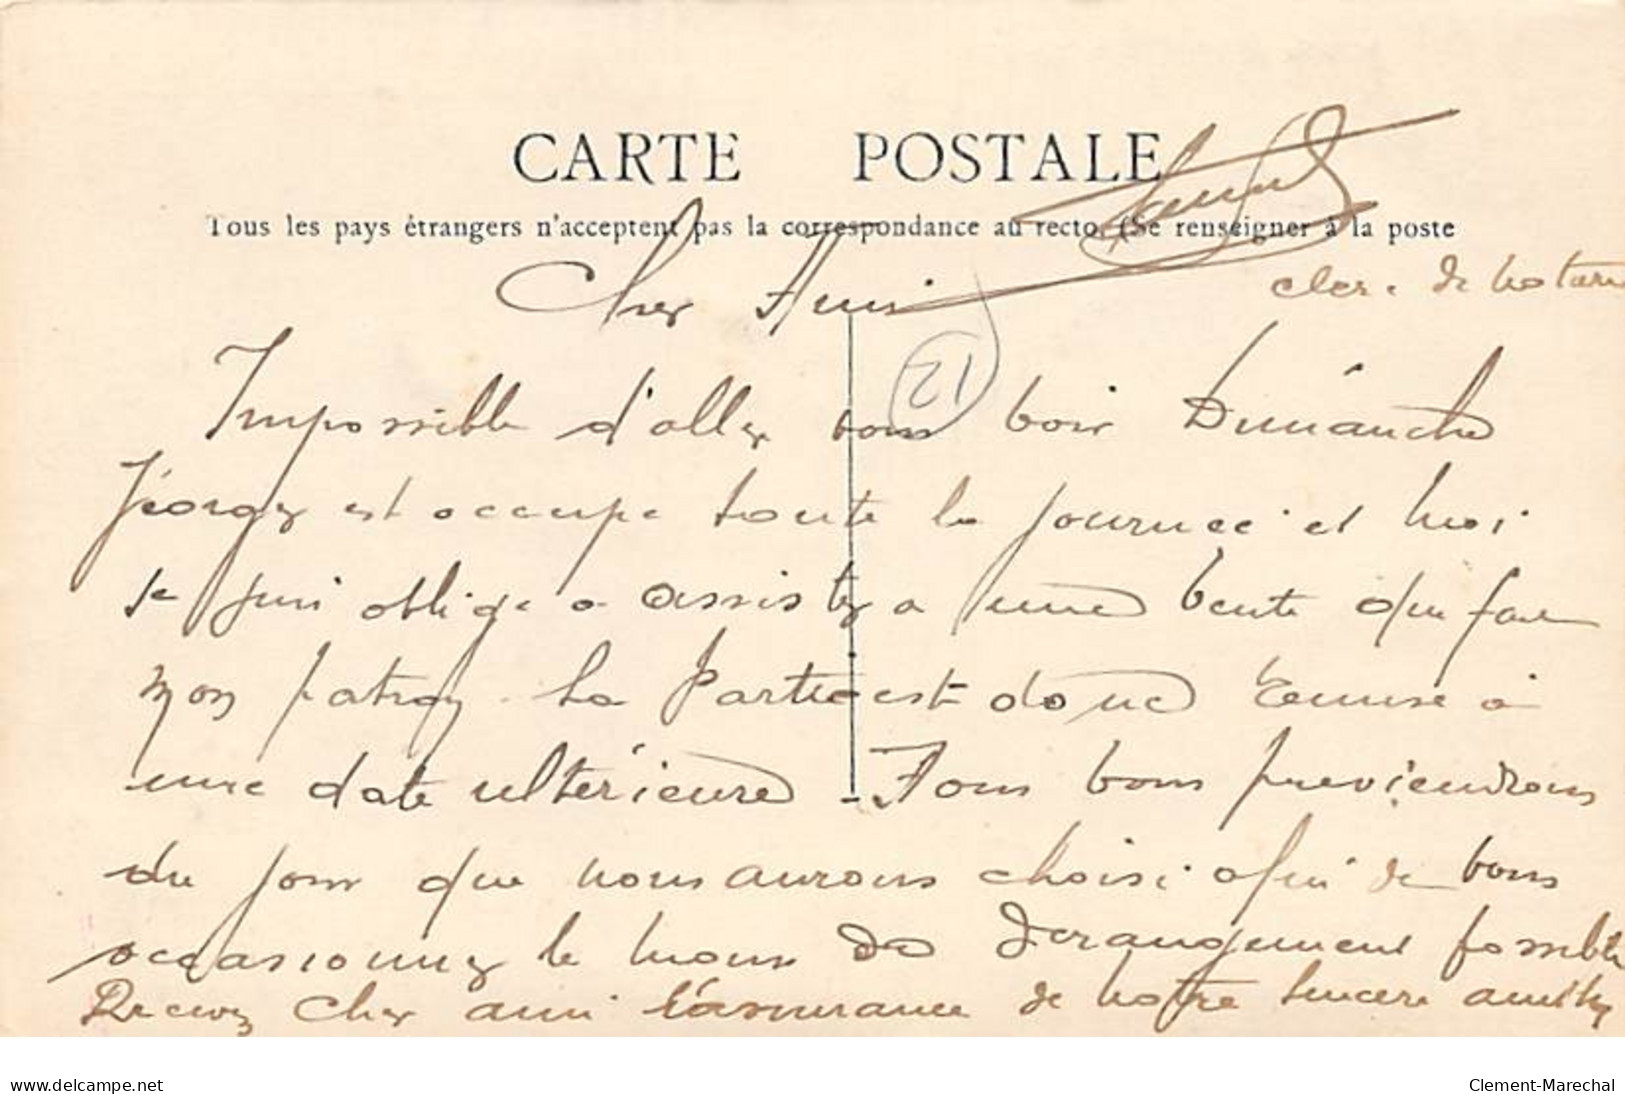 CARTE POSTALE
Tous les pays étrangers n'acceptent pas la correspondance au recto. (Se renseigner à la poste
Cher Ami
clerc de notaire
12
Impossible d'aller vous voir Dimanche
Géorges est occupé toute la journée et moi
je suis obligé a assister a une vente que fait
mon patron. La partie est donc remise à
une date ultérieure. Nous vous previendrons
du jour que nous aurons choisi afin de vous
occasionner le moins de derangement possible
Recevez cher ami l'assurance de notre sincere amitié
www.delcampe.net
Clement-Marechal